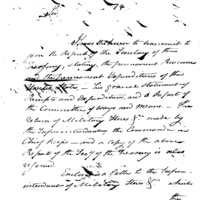 Sir
I have the honor to transmit to
you the Report of the Secretary of the
Treasury, stating the permanent Revenue
and the permanent Expenditures of the
United States, his General Statement of
Receipts and Expenditures, and a Report of
the Committee of Ways and Means. The
Return of Military Stores & made by
the Superintendant, the Commander in
Chief keeps and a copy of the above
Report of the Secy of the Treasury is also
Enclosed is a Letter to the Superin-
tendant of Military Stores & which
the